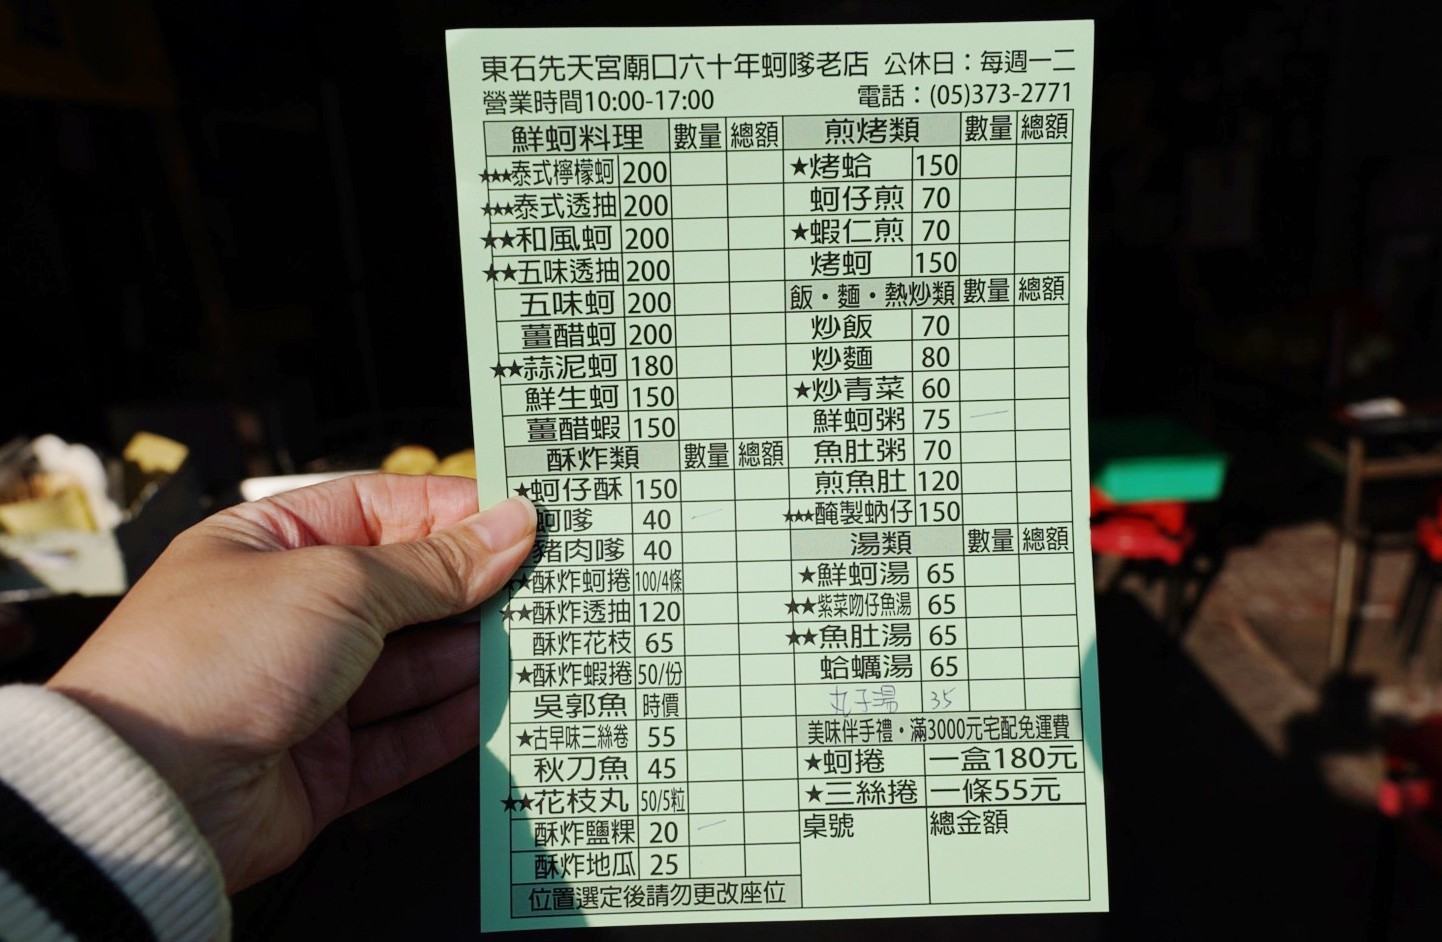 東石先天宮廟口六十年蚵嗲老店 公休日：每週一二
營業時間10:00-17:00 電話：(05)373-2771
鮮蚵料理 數量 總額
★★★泰式檸檬蚵 200
★★★泰式透抽 200
★★和風蚵 200
★★五味透抽 200
五味蚵 200
薑醋蚵 200
★★蒜泥蚵 180
鮮生蚵 150
薑醋蝦 150
酥炸類 數量 總額
★蚵仔酥 150
蚵嗲 40 一
豬肉嗲 40
★★酥炸蚵捲 100/4條
★★酥炸透抽 120
酥炸花枝 65
★酥炸蝦捲 50/份
吳郭魚 時價
★古早味三絲卷 55
秋刀魚 45
★★花枝丸 50/5粒
酥炸鹽粿 20 一
酥炸地瓜 25
位置選定後請勿更改座位
煎烤類 數量 總額
★烤蛤 150
蚵仔煎 70
★蝦仁煎 70
烤蚵 150
飯・麵・熱炒類 數量 總額
炒飯 70
炒麵 80
★炒青菜 60
鮮蚵粥 75 一
魚肚粥 70
煎魚肚 120
★★★醃製蚋仔 150
湯類 數量 總額
★鮮蚵湯 65
★★紫菜吻仔魚湯 65
★★魚肚湯 65
蛤蠣湯 65
丸子湯 35
美味伴手禮・滿3000元宅配免運費
★蚵捲 一盒180元
★三絲捲 一條55元
桌號 總金額